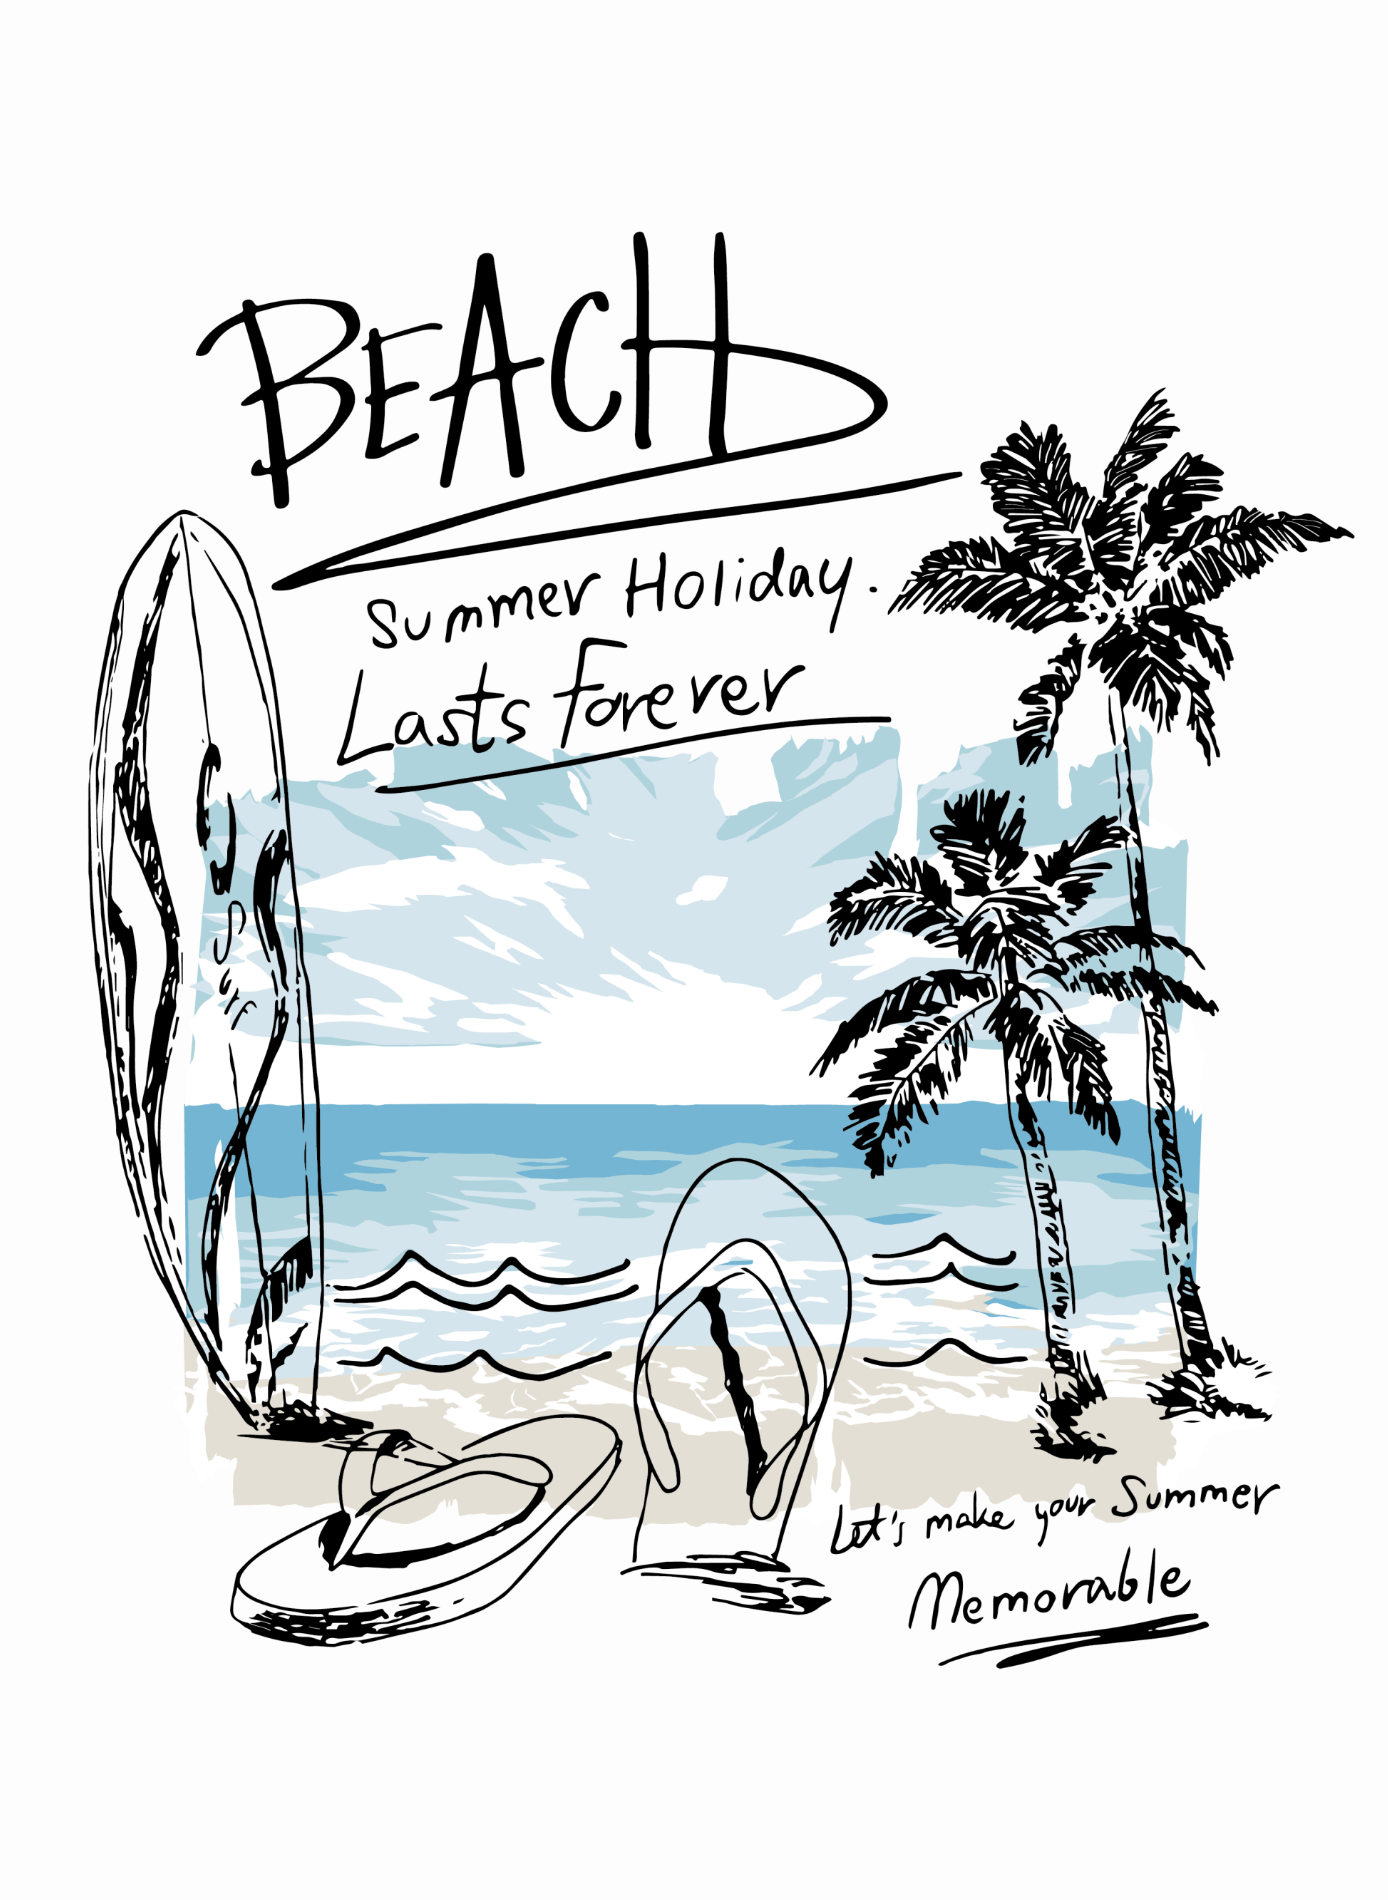 BEACH
Summer Holiday.
Lasts Forever
Surf
Let's make your Summer
Memorable